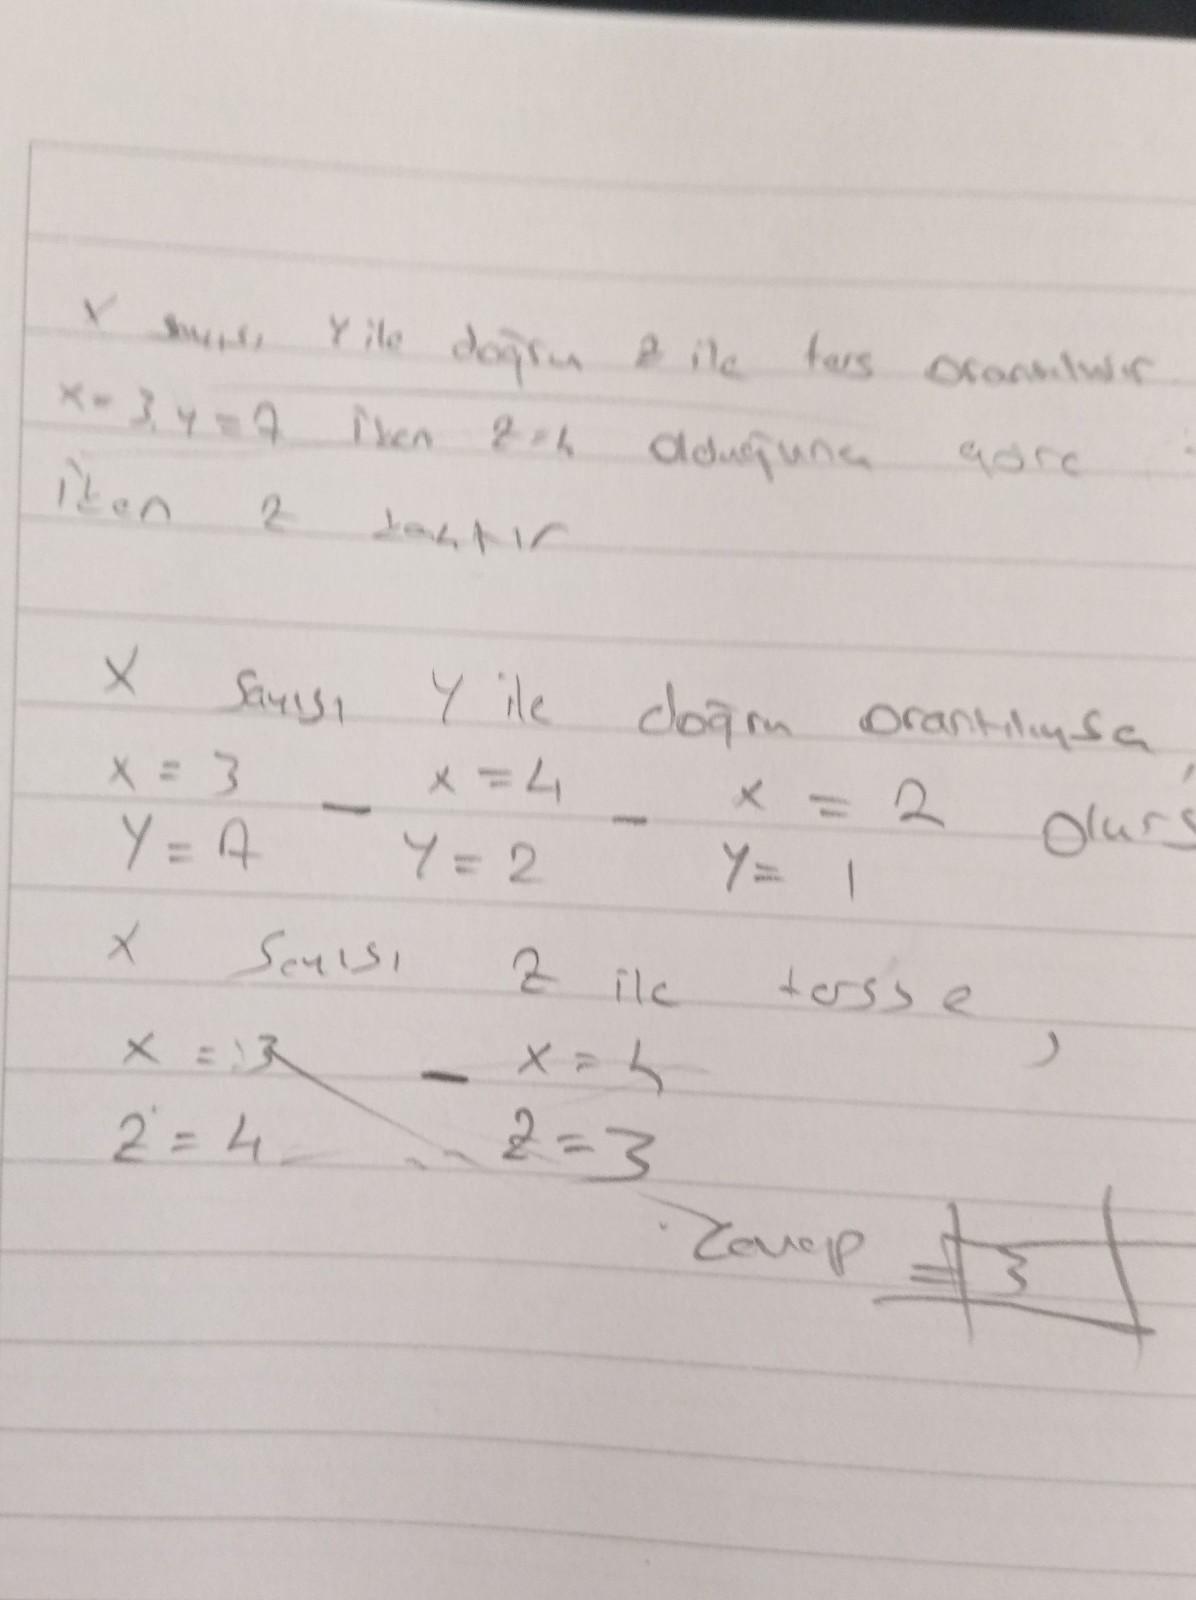 X sayısı Y ile doğru z ile ters orantılıdır
x=3, y=7 iken z=4 olduğuna göre
iken z kaçtır
X sayısı Y ile doğru orantılıysa,
x=3 - x=4 - x=2 olurs
Y=7 Y=2 Y=1
X sayısı z ile tersse,
x=3 - x=4
z=4 z=3
Cevap = 3